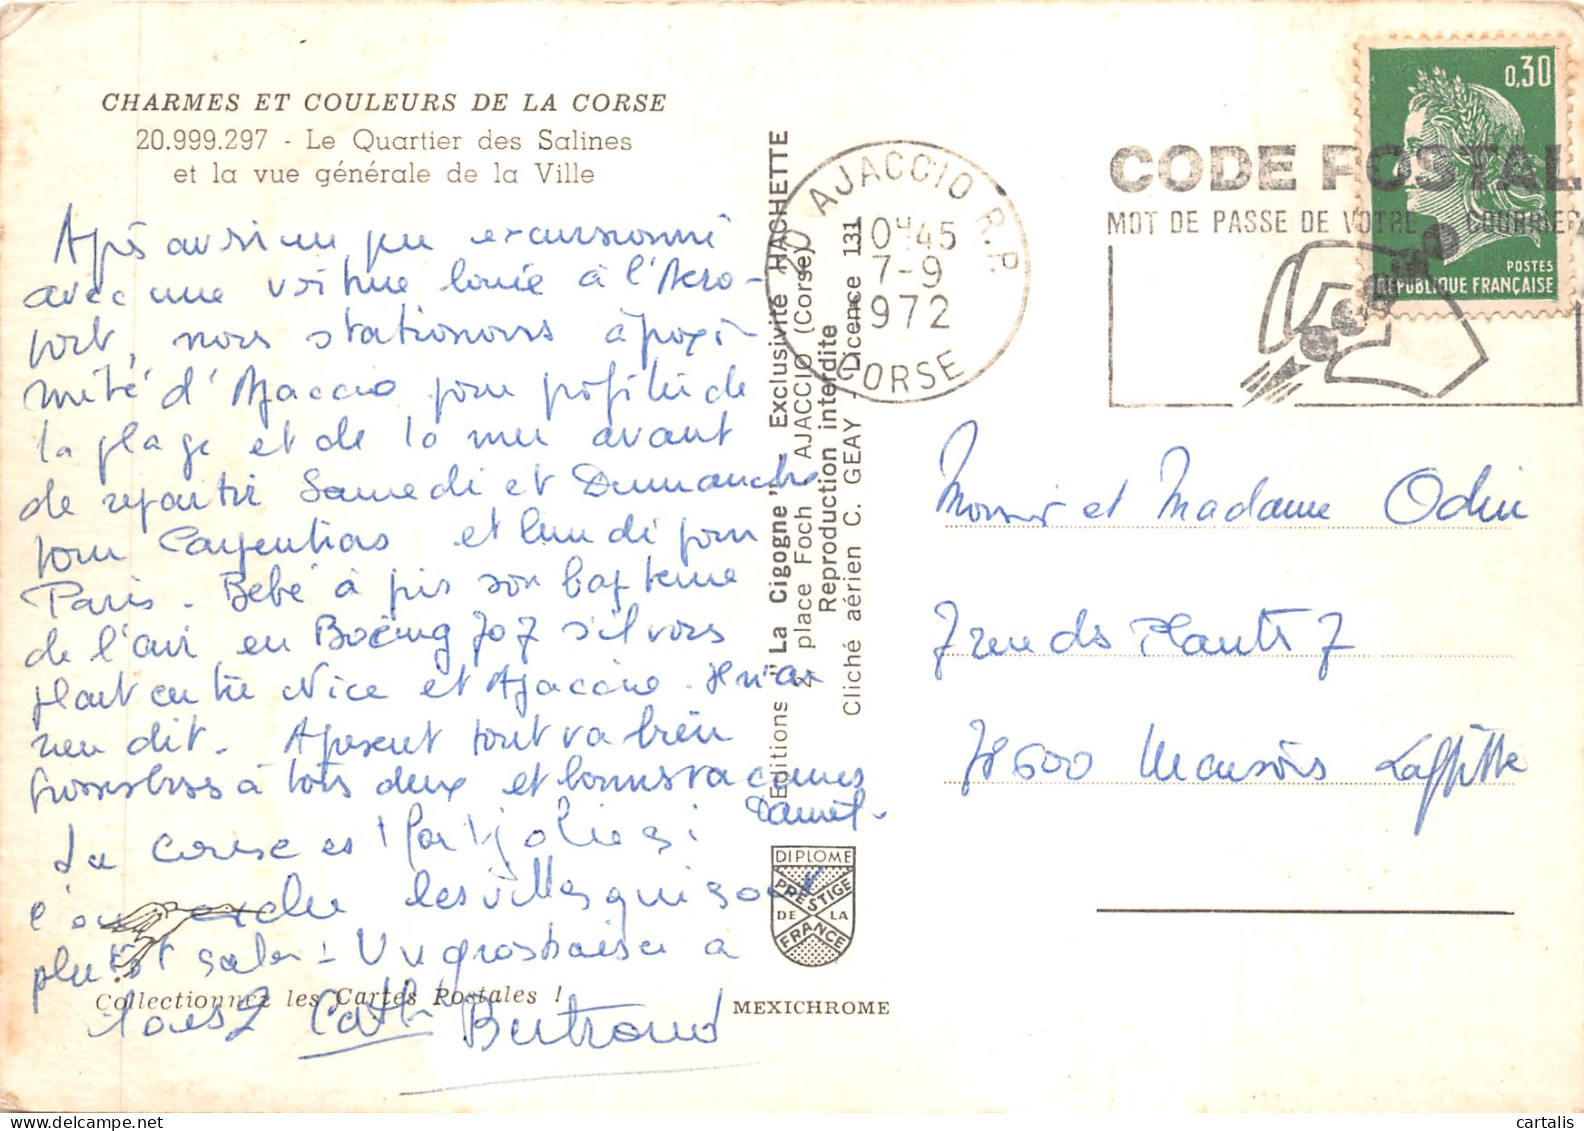 CHARMES ET COULEURS DE LA CORSE
20.999.297 - Le Quartier des Salines
et la vue générale de la Ville
Après avoir un peu excursionné
avec une voiture louée à l'Aéro-
port, nous stationons à proxi-
mité d'Ajaccio pour profiter de
la plage et de la mer avant
de repartir Samedi et Dimanche
pour Carpentras et lundi pour
Paris - Bébé à pris son bapteme
de l'air en Boeing 707 s'il vous
plait entre Nice et Ajaccio. Il n'a
rien dit. A present tout va bien
Gros bisous à tous deux et bonnes vacances
Daniel.
La Corse est jolie si
l'on exclue les villes qui sont
plutôt sales! Un gros baiser a
tous 2 Cath Bertrand
Collectionnez les Cartes Postales !
Editions "La Cigogne" - Exclusivité HACHETTE
2, place Foch AJACCIO (Corse)
Reproduction interdite
Cliché aérien C. GEAY - Licence 131
DIPLOME
PRESTIGE
DE LA
FRANCE
MEXICHROME
AJACCIO R.P.
10H45
7-9
1972
CORSE
CODE POSTAL
MOT DE PASSE DE VOTRE COURRIER
0,30
POSTES
REPUBLIQUE FRANÇAISE
Monsieur et Madame Odin
7 rue des Plantes 7
78600 Maisons Laffitte
cartalis